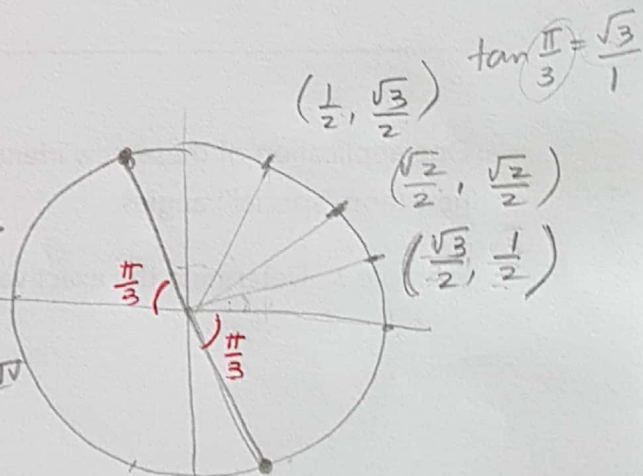 tan π/3 = √3/1
(1/2, √3/2)
(√2/2, √2/2)
(√3/2, 1/2)
π/3
π/3